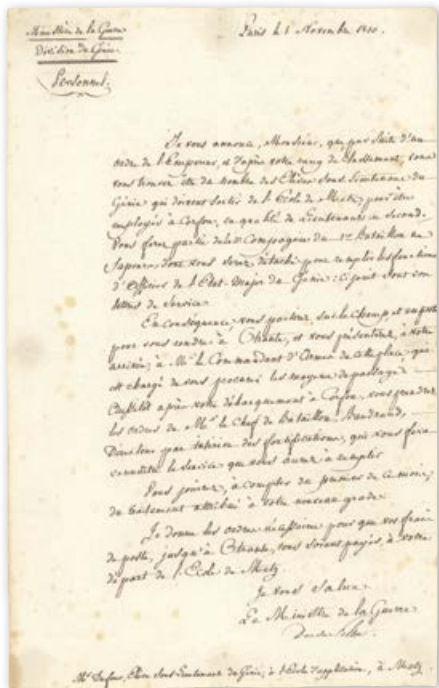 Ministère de la Guerre
Division du Génie.
Personnel.
Paris le 1 Novembre 1810.
Je vous annonce, Monsieur, que par suite d'un
ordre de l'Empereur, et d'après votre rang de classement, vous
vous trouvez être du nombre des Elèves Sous-Lieutenans du
Génie qui doivent sortir de l'Ecole de Metz, pour être
employés à Corfou, en qualité de Lieutenans en Second.
Vous ferez partie de la Compagnie du Bataillon de
Sapeurs, dont vous serez détaché pour remplir les fonctions
d'Officier de l'Etat-Major du Génie: ci-joint sont vos
lettres de Service.
En conséquence, vous partirez sur le champ, et en poste
pour vous rendre à Otrante, et vous présenterez, à votre
arrivée, à Mr. le Commandant d'Armes de cette place, qui
est chargé de vous procurer les moyens de passage.
Aussitôt après votre débarquement à Corfou, vous prendrez
les ordres de Mr. le Chef de Bataillon Baudrand,
Directeur par intérim des fortifications, qui vous fera
connaître le service que vous aurez à remplir.
Vous jouirez, à compter du premier de ce mois,
du traitement attribué à votre nouveau grade.
Je donne les ordres nécessaires pour que vos frais
de poste, jusqu'à Otrante, vous soient payés, à votre
départ de l'Ecole de Metz.
Je vous salue.
Le Ministre de la Guerre
Mr. Dufour, Elève Sous-Lieutenant du Génie, à l'Ecole d'application, à Metz.